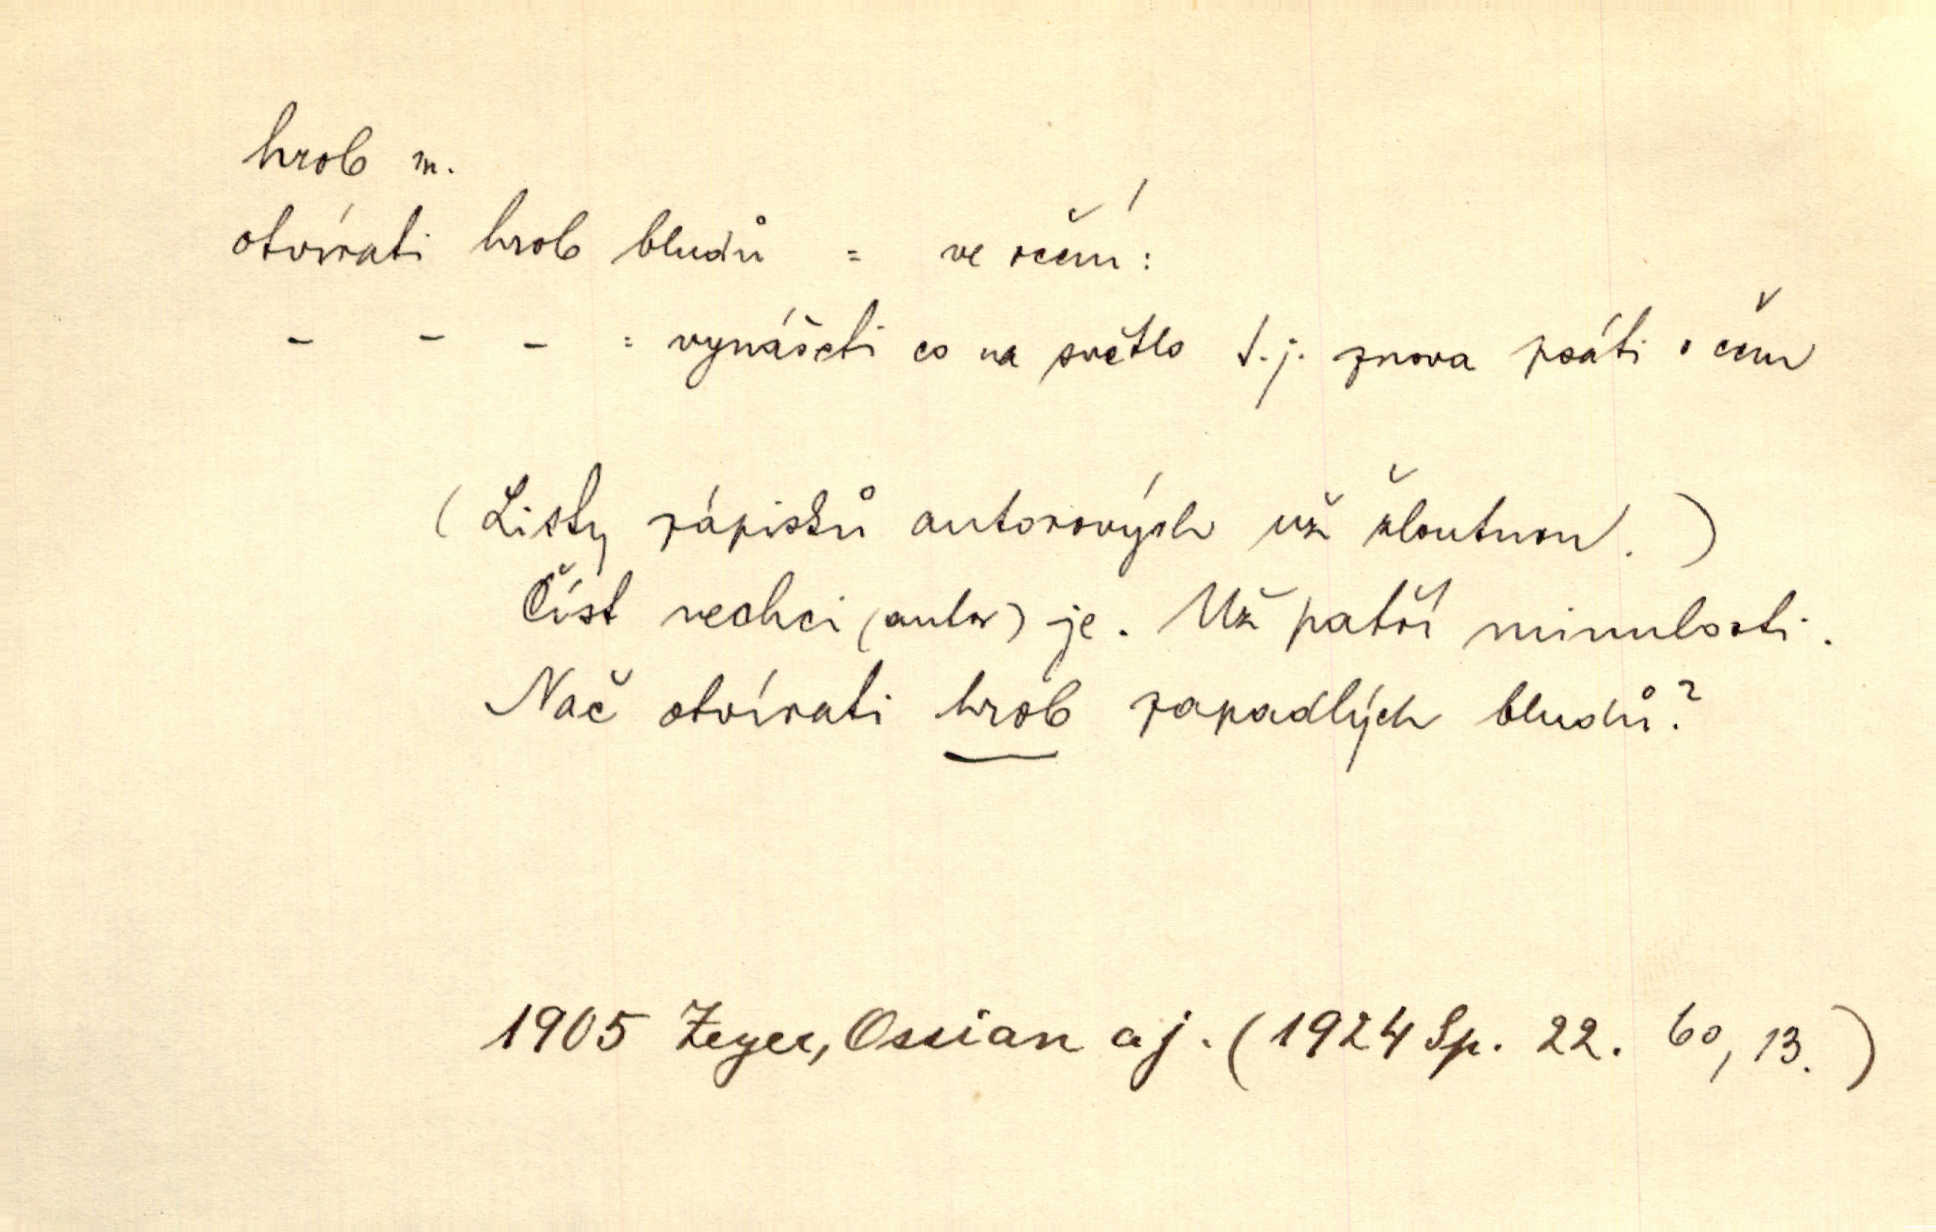 hrob m.
otvírati hrob bludů = ve rčení:
– – – = vynášeti co na světlo t.j. znova psáti o čem
(Listy zápisků autorových už žloutnou.)
Číst nechci (autor) je. Už patří minulosti.
Nač otvírati hrob zapadlých bludů?
1905 Zeyer, Ossian aj. (1924 Sp. 22. 60, 13.)